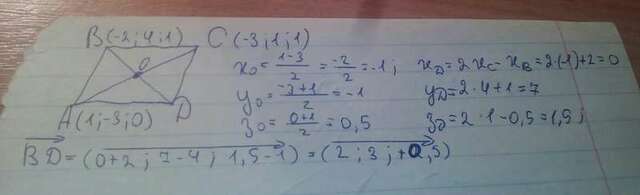 B(-2;4;1) C(-3;1;1)
O
A(1;-3;0) D
x₀ = (1-3)/2 = -2/2 = -1; x_D = 2x_C - x_B = 2·(-1)+2=0
y₀ = (-3+1)/2 = -1 y_D = 2·4+1=7
z₀ = (0+1)/2 = 0,5 z_D = 2·1-0,5=1,5;
BD = (0+2; 7-4; 1,5-1) = (2; 3; +0,5)